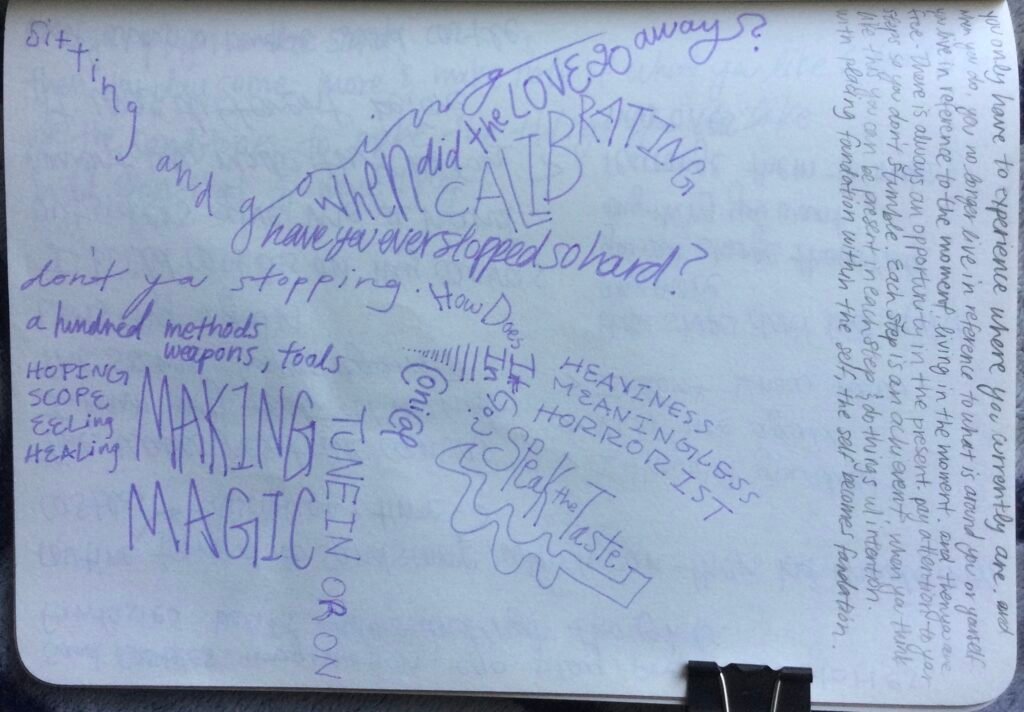 Sitting and going
when did the LOVE go away?
CALIBRATING
have you ever stopped so hard?
don't ya stopping.
How Does It In Go?
a hundred methods
weapons, tools
HOPING
SCOPE
EELing
HEALing
MAKING
MAGIC
TUNE IN OR ON
HEAVINESS
MEANINGLESS
HORRORIST
Speak the Taste
you only have to experience where you currently are. and
when you do, you no longer live in reference to what is around you or yourself
you live in reference to the moment, living in the moment. and then you are
free. There is always an opportunity in the present pay attention to your
steps so you don't stumble. Each step is an achievement, when you think
like this you can be present in each step & do things w/ intention.
with fandation within the self, the self becomes fandation.